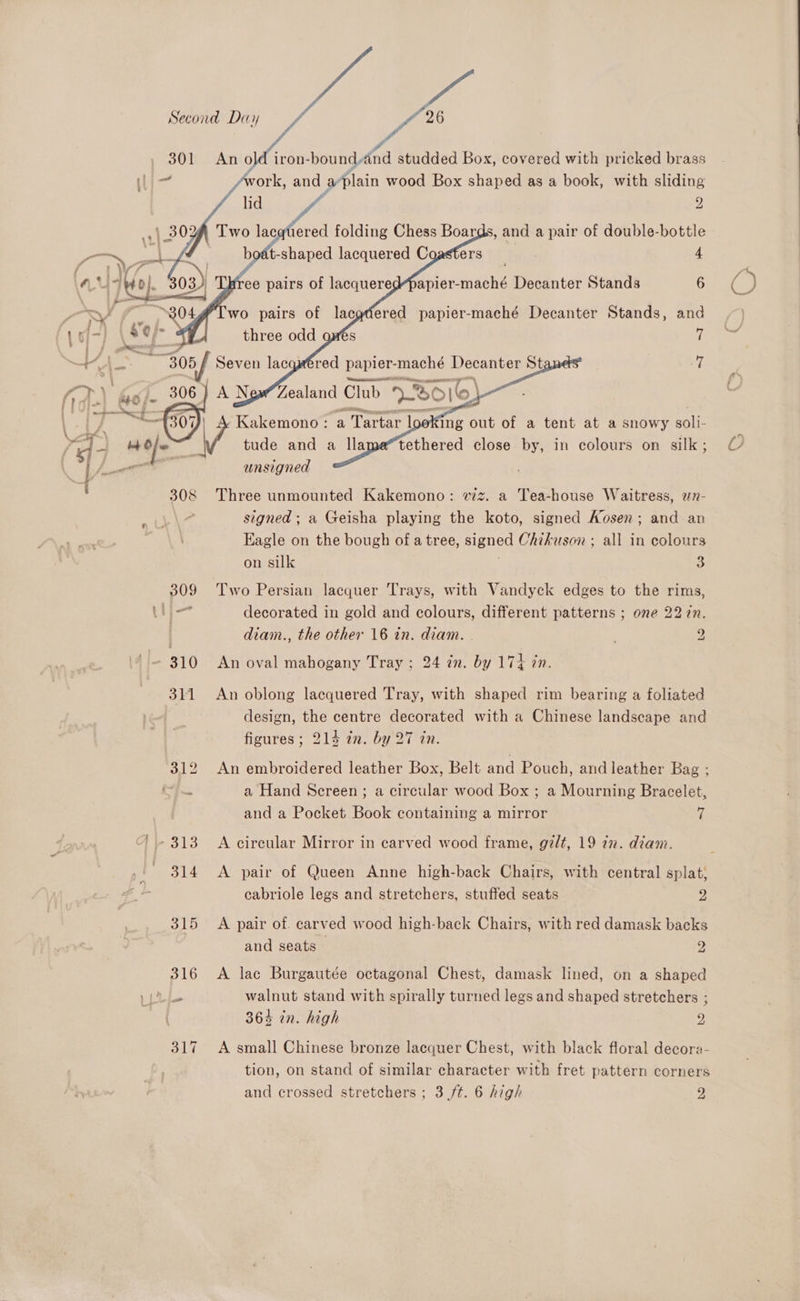 Second Day 26
301 An old iron-bound and studded Box, covered with pricked brass
work, and a plain wood Box shaped as a book, with sliding
lid 2
302 Two lacquered folding Chess Boards, and a pair of double-bottle
boat-shaped lacquered Coasters 4
303 Three pairs of lacquered papier-maché Decanter Stands 6
304 Two pairs of lacquered papier-maché Decanter Stands, and
three odd ones 7
305 Seven lacquered papier-maché Decanter Stands 7
306 A New Zealand Club
307 A Kakemono: a Tartar looking out of a tent at a snowy soli-
tude and a llama tethered close by, in colours on silk;
unsigned
308 Three unmounted Kakemono: viz. a Tea-house Waitress, un-
signed; a Geisha playing the koto, signed Kosen; and an
Eagle on the bough of a tree, signed Chikuson; all in colours
on silk 3
309 Two Persian lacquer Trays, with Vandyck edges to the rims,
decorated in gold and colours, different patterns; one 22 in.
diam., the other 16 in. diam. 2
310 An oval mahogany Tray; 24 in. by 17½ in.
311 An oblong lacquered Tray, with shaped rim bearing a foliated
design, the centre decorated with a Chinese landscape and
figures; 21½ in. by 27 in.
312 An embroidered leather Box, Belt and Pouch, and leather Bag;
a Hand Screen; a circular wood Box; a Mourning Bracelet,
and a Pocket Book containing a mirror 7
313 A circular Mirror in carved wood frame, gilt, 19 in. diam.
314 A pair of Queen Anne high-back Chairs, with central splat,
cabriole legs and stretchers, stuffed seats 2
315 A pair of carved wood high-back Chairs, with red damask backs
and seats 2
316 A lac Burgautée octagonal Chest, damask lined, on a shaped
walnut stand with spirally turned legs and shaped stretchers;
36½ in. high 2
317 A small Chinese bronze lacquer Chest, with black floral decora-
tion, on stand of similar character with fret pattern corners
and crossed stretchers; 3 ft. 6 high 2